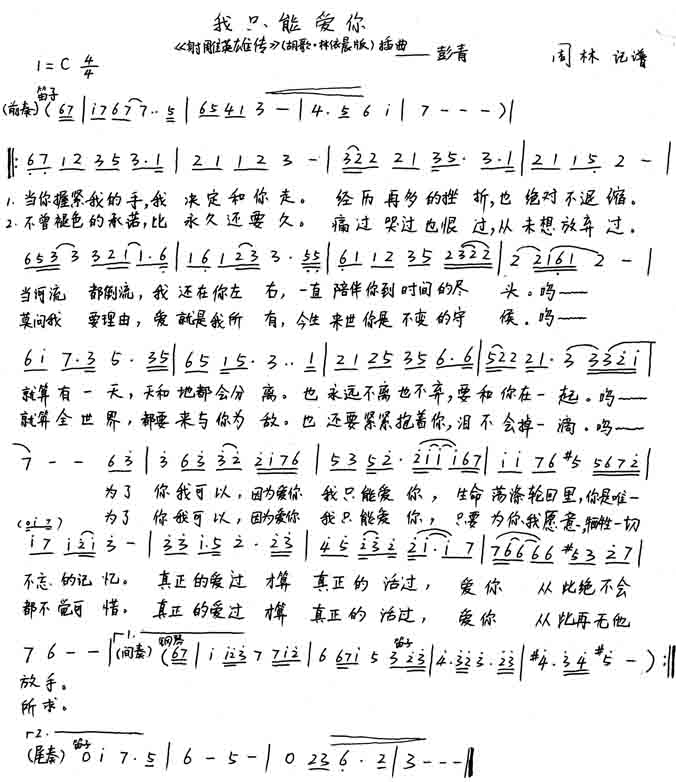 我只能爱你
《射雕英雄传》(胡歌·林依晨版)插曲——彭青
周林 记谱
1=C 4/4
笛子
(前奏)(67 | i7677·· 5 | 6541 3 - | 4. 5 6 i | 7 - - - )|
‖: 67 12 35 3·1 | 21 12 3 - | 322 21 35· 3·1 | 21 15 2 - |
1. 当你握紧我的手,我 决定和你走。 经历再多的挫折,也 绝对不退缩。
2. 不曾褪色的承诺,比 永久还要久。 痛过哭过也恨过,从 未想放弃过。
653 3 3211·6 | 161 23 3·55 | 61 12 35 2322 | 2 2161 2 - |
当河流 都倒流,我 还在你左 右,一直 陪伴你到时间的尽 头。呜——
莫问我 要理由,爱 就是我所 有,今生 来世你是不变的守 侯。呜——
6i 7·3 5·35 | 65 15·3·· 1 | 21 25 35 6·6 | 522 21·3 332i |
就算有一天,天和 地都会分 离。也 永远不离也不弃,要和你在一起。呜——
就算全世界,都要 来与你为 敌。也 还要紧紧抱着你,泪不会掉一滴。呜——
7 - - 63 | 3 63 32 2i76 | 53 52·2ii i67 | ii 76 #5 5672 |
为了 你我可以,因为爱你 我只能爱你, 生命荡涤轮回里,你是唯一
为了 你我可以,因为爱你 我只能爱你, 只要为你我愿意,牺牲一切
(0i7)
i7 i2i 3 - | 33 i·5 2·23 | 45 232 2i·i 7 | 76666 #53 27 |
不忘的记忆。 真正的爱过 才算 真正的活过, 爱你 从此绝不会
都不觉可惜。 真正的爱过 才算 真正的活过, 爱你 从此再无他
7 6 - - | 1. (间奏) 钢琴 (67 | i i23 7 7i2 | 6 67i 5 笛子 323 | 4·323·23 | #4·34 #5 - ) :‖
放手。
所求。
2.
(尾奏) 笛子 0 i 7·5 | 6 - 5 - | 0 23 6·2 | 3 - - - ‖